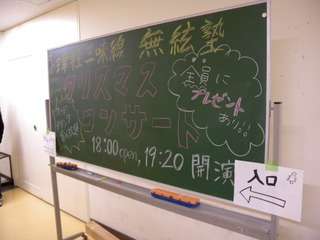 津軽三味線 無絃塾
クリスマス
コンサート
全員に
プレゼント
あり!!!
18:00 open, 19:20 開演
入口